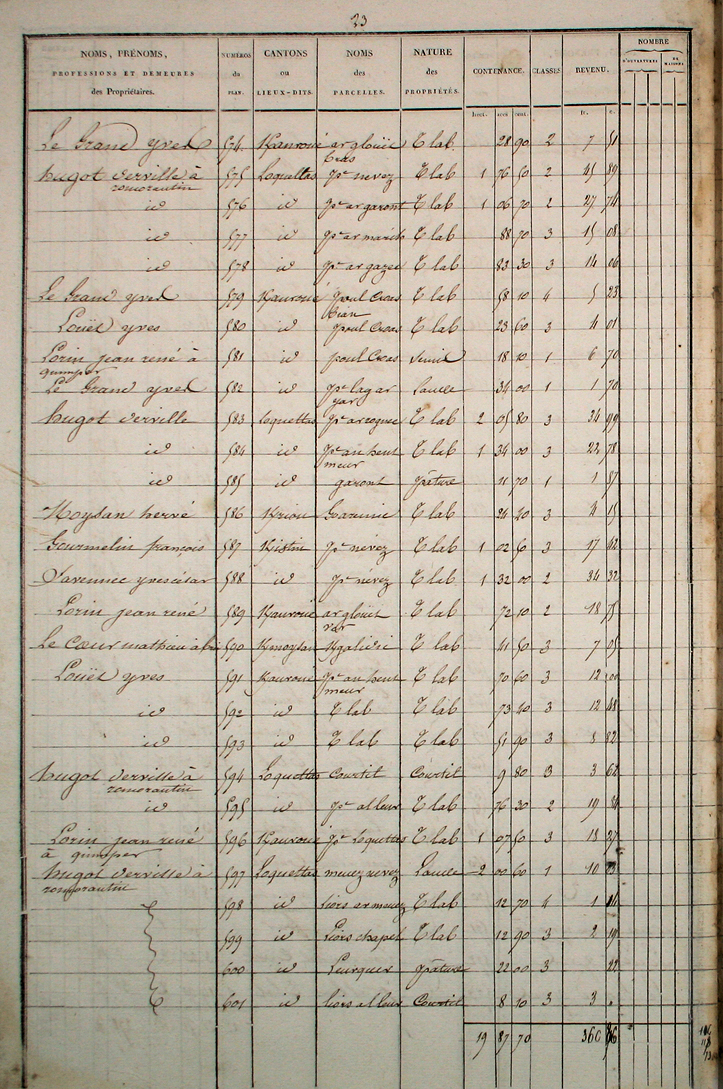 23
NOMS, PRÉNOMS, PROFESSIONS ET DEMEURES des Propriétaires. NUMÉROS du PLAN. CANTONS ou LIEUX-DITS. NOMS des PARCELLES. NATURE des PROPRIÉTÉS. CONTENANCE. CLASSES REVENU. NOMBRE D'OUVERTURES DE MAISONS
hect. ares cent. fr. c.
Le Grand yves 574 Kauroué ar glouïe bras T lab 28 90 2 7 51
hugot verville à romorantin 575 Loquettas pc nevez T lab 1 76 50 2 45 89
id 576 id pc ar garont T lab 1 06 70 2 27 74
id 577 id pc ar march T lab 88 70 3 15 08
id 578 id pc ar gazec T lab 83 30 3 14 06
Le Grand yves 579 Kauroué poul Croas bian T lab 58 10 4 5 23
Louët yves 580 id poul Croas T lab 23 60 3 4 01
Lorin jean rené à quimper 581 id poul Croas 18 10 1 6 70
Le Grand yves 582 id pc le gar yar Lande 34 00 1 1 70
hugot verville 583 Loquettas T lab 2 05 80 3 34 99
id 584 id pc an hent meur T lab 1 34 00 3 22 78
id 585 id garont pâture 11 70 1 1 57
Moysan hervé 586 Kriou Goarmic T lab 24 20 3 4 15
Gourmelin françois 587 Kistin pc nevez T lab 1 02 50 3 17 42
588 id pc nevez T lab 1 32 00 2 34 32
Lorin jean rené 589 Kauroué ar glouët T lab 72 10 2 18 75
Le Cœur mathieu 590 Kmoysan Kgalidic T lab 41 50 3 7 05
Louët yves 591 Kauroué pc an hent meur T lab 70 60 3 12 00
id 592 id T lab T lab 73 40 3 12 48
id 593 id T lab T lab 51 90 3 8 82
hugot verville à romorantin 594 Loquettas Courtil Courtil 9 80 3 3 62
id 595 id pc al leur T lab 76 30 2 19 84
Lorin jean rené à quimper 596 Kauroué pc Loquettas T lab 1 07 50 3 18 27
hugot verville à romorantin 597 Loquettas menez nevez Lande 2 00 60 1 10 03
598 id liors ar menez T lab 12 70 4 1 14
599 id Liors chapel T lab 12 90 3 2 19
600 id Leurquer pâture 22 00 3 22
601 id liors al leur Courtil 8 10 3 3 "
19 87 70 360 86